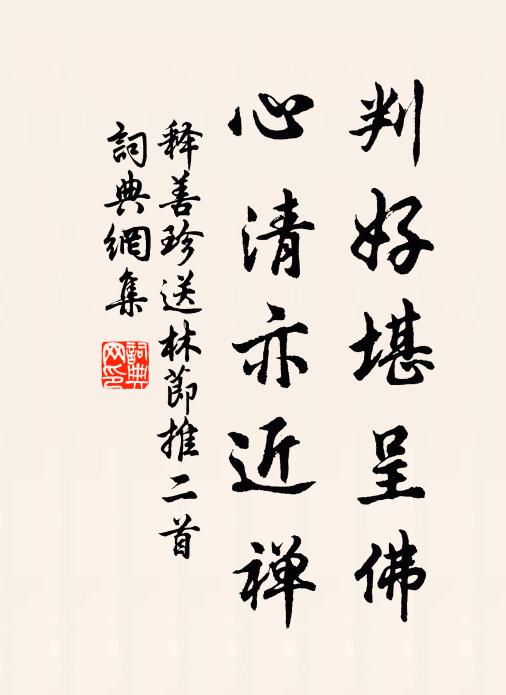 判好堪呈佛
心清亦近禅
释善珍送林節推二首
詞典網集
詞典网印